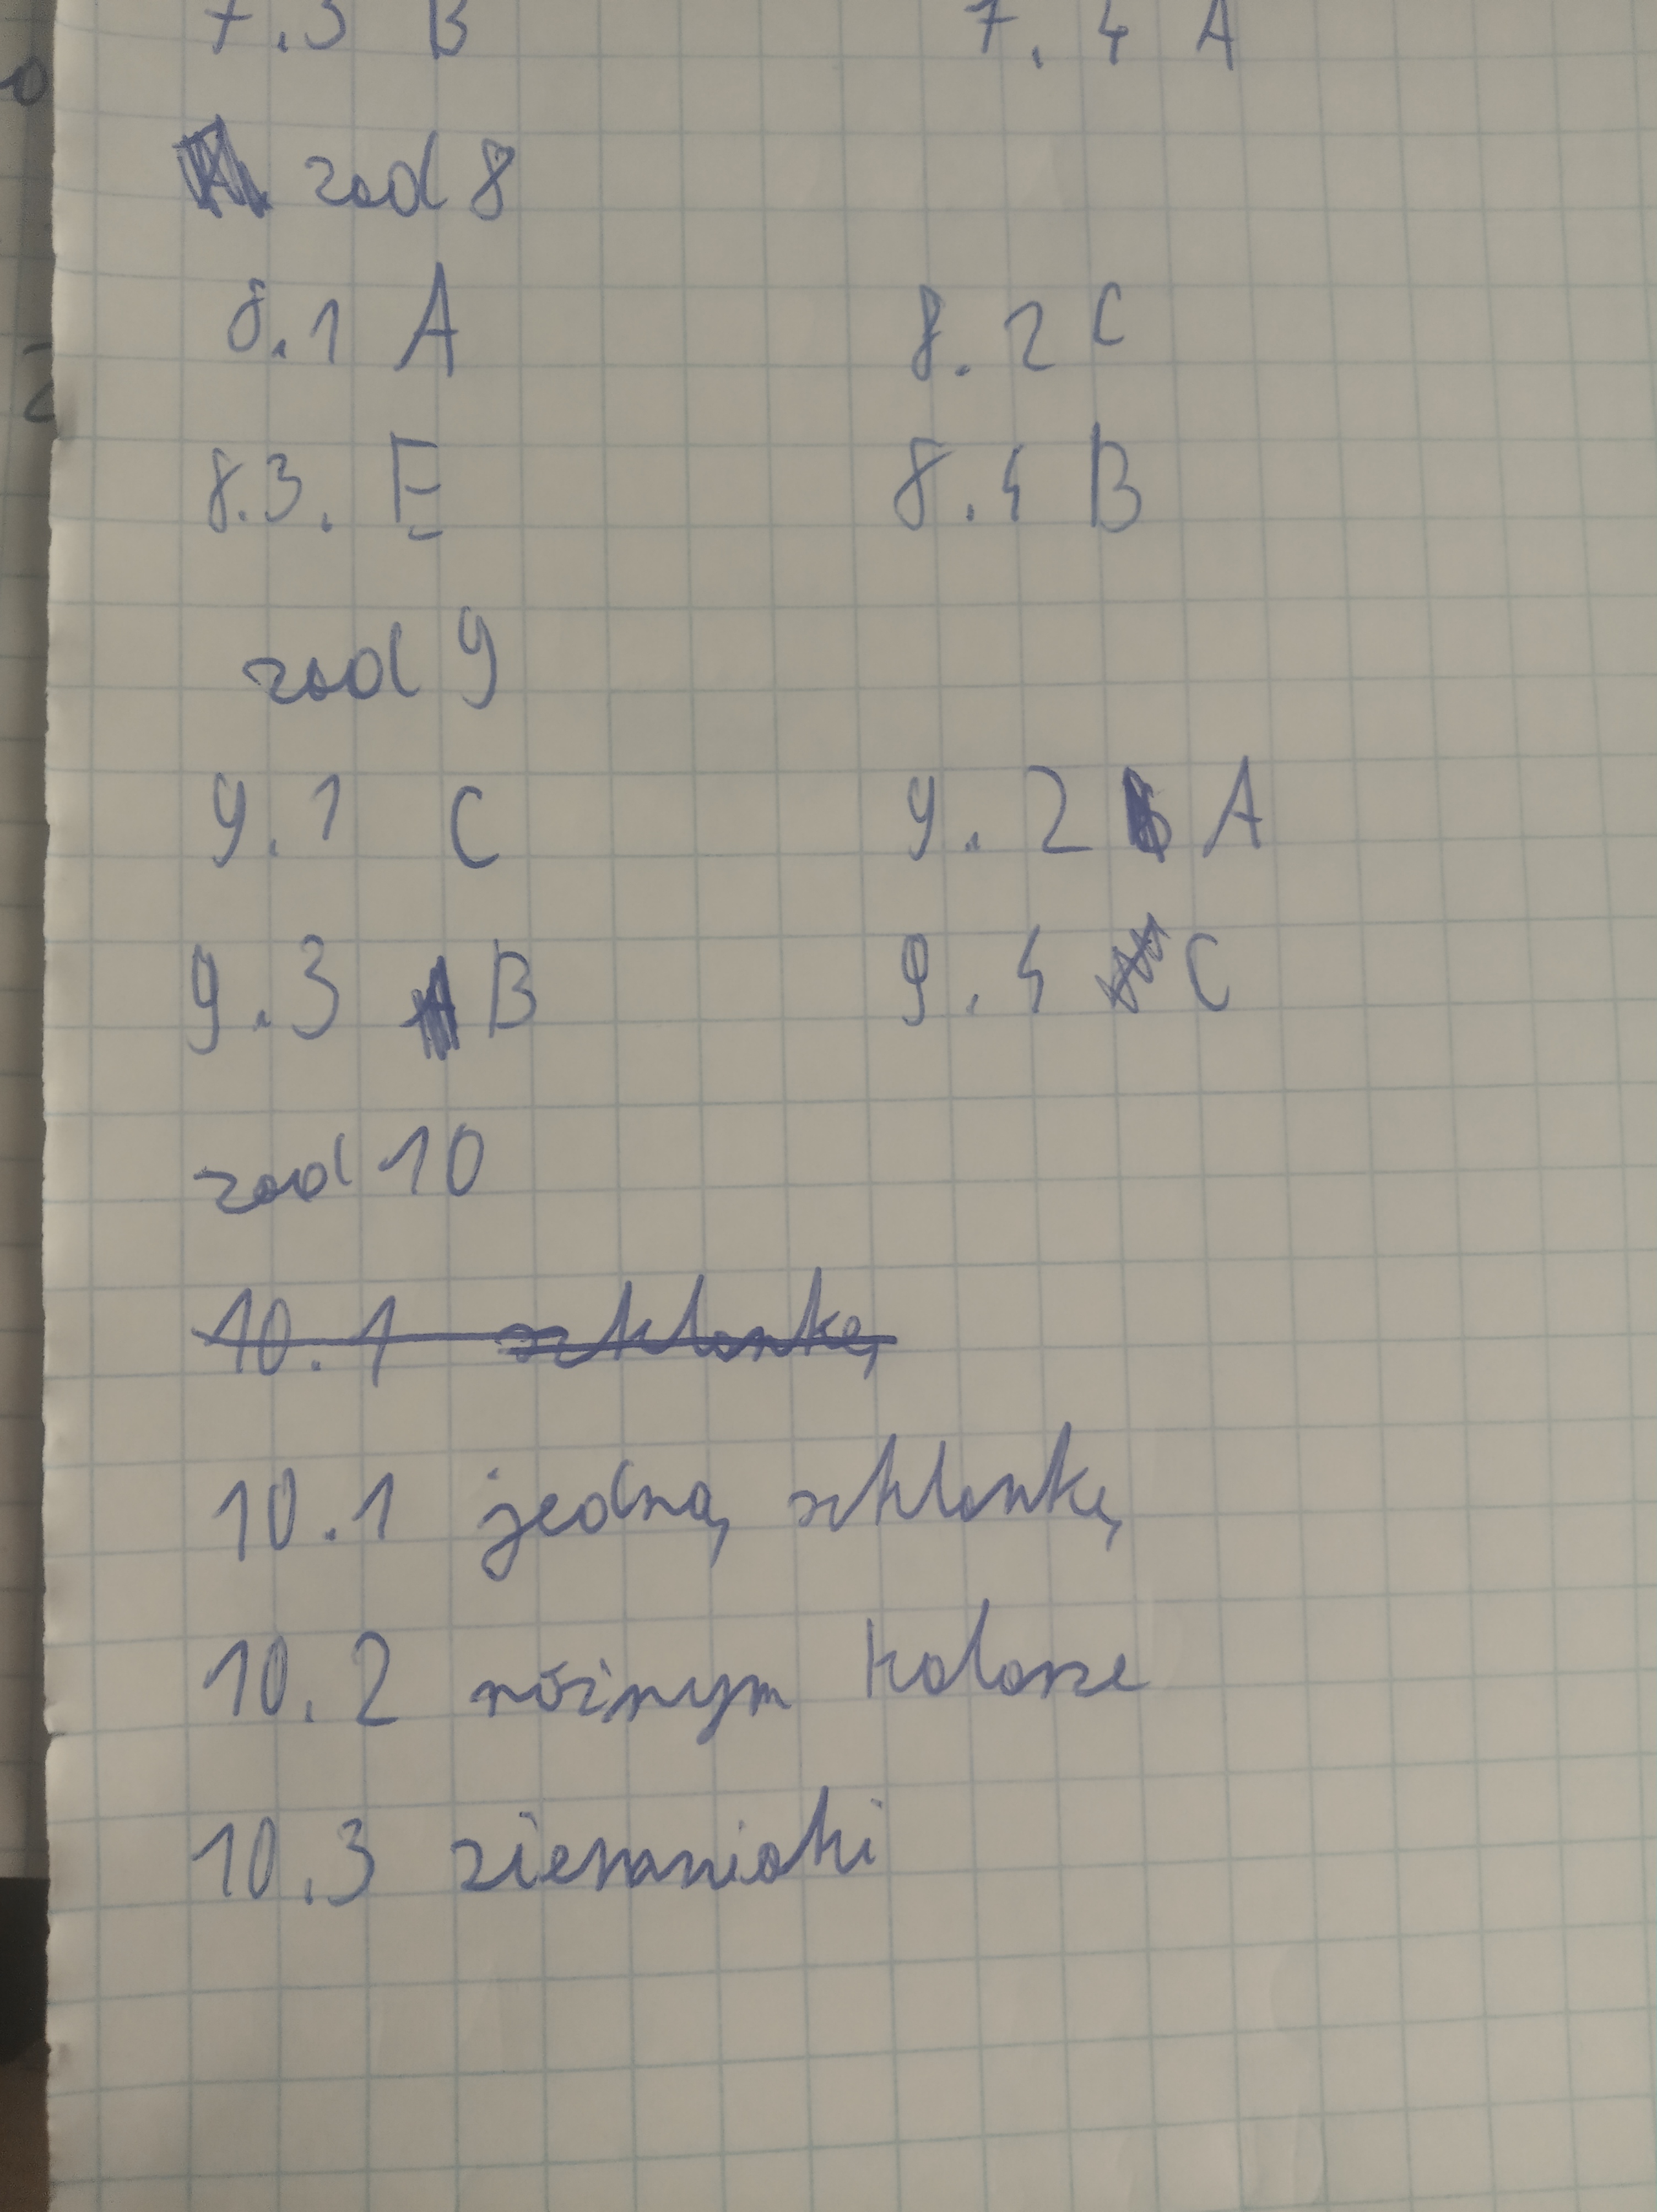 7.3 B 7.4 A
zad 8
8.1 A 8.2 C
8.3. E 8.4 B
zad 9
9.1 C 9.2 A
9.3 B 9.4 C
zad 10
10.1 szklankę
10.1 jedną szklankę
10.2 różnym kolorze
10.3 ziemniaki